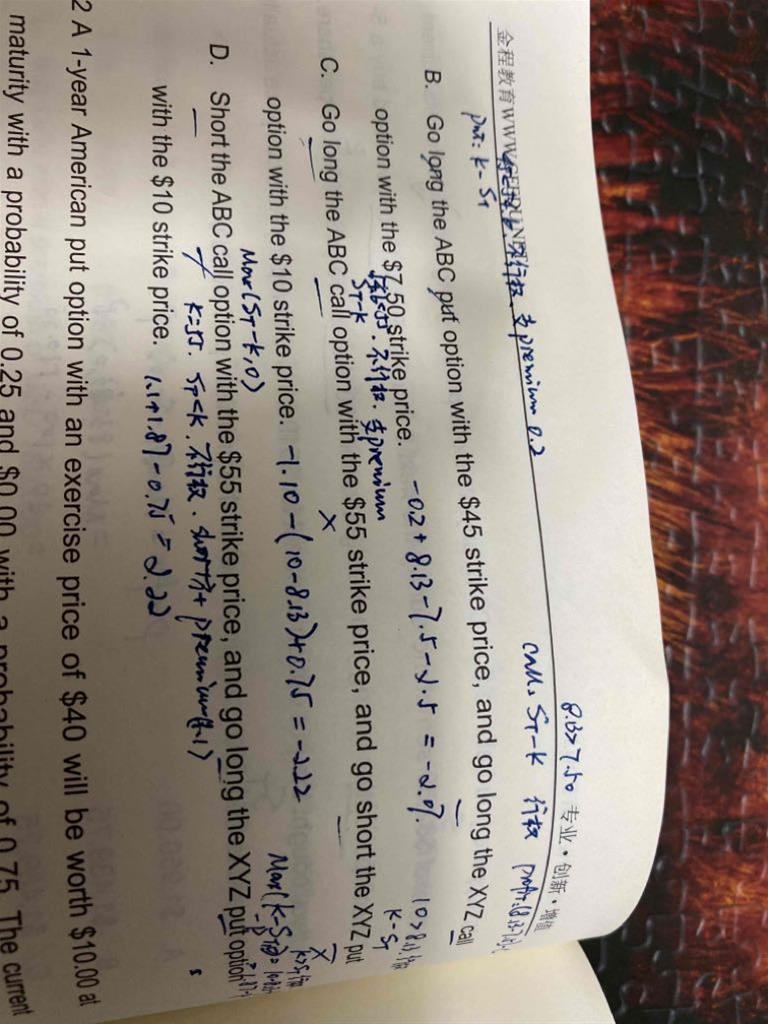 8.13>7.50
金程教育WWW. 专业·创新·增值
不行权 支premium 0.2
call: ST-K 行权
put: K-ST
B. Go long the ABC put option with the $45 strike price, and go long the XYZ call
option with the $7.50 strike price. -0.2+8.13-7.5-2.5 = -2.07.
不行权. 支premium
ST-K
10>8.13.
K-ST
C. Go long the ABC call option with the $55 strike price, and go short the XYZ put
option with the $10 strike price. -1.10-(10-8.13)+0.75 = -2.22
Max(ST-K,0)
D. Short the ABC call option with the $55 strike price, and go long the XYZ put option
K=55. ST<K. 不行权. short方+premium(1.1)
with the $10 strike price. 1.1+1.87-0.75 = 2.22
2 A 1-year American put option with an exercise price of $40 will be worth $10.00 at
maturity with a probability of 0.25 and $0.00 with a probability of 0.75. The current